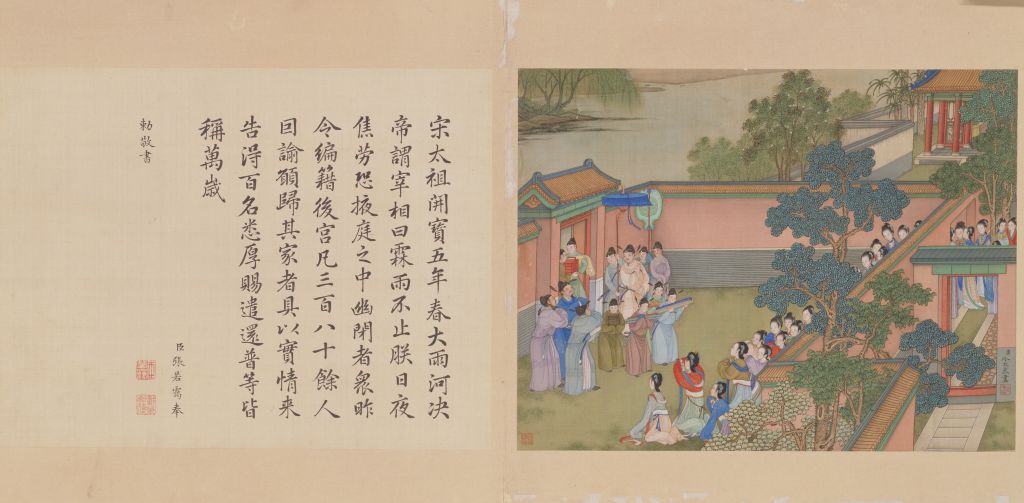 宋太祖開寶五年春大雨河决
帝謂宰相曰霖雨不止朕日夜
焦勞恐掖庭之中幽閉者衆昨
令編籍後宮凡三百八十餘人
因諭願歸其家者具以實情来
告得百名悉厚賜遣還普等皆
稱萬歳
臣張若靄奉
勅敬書